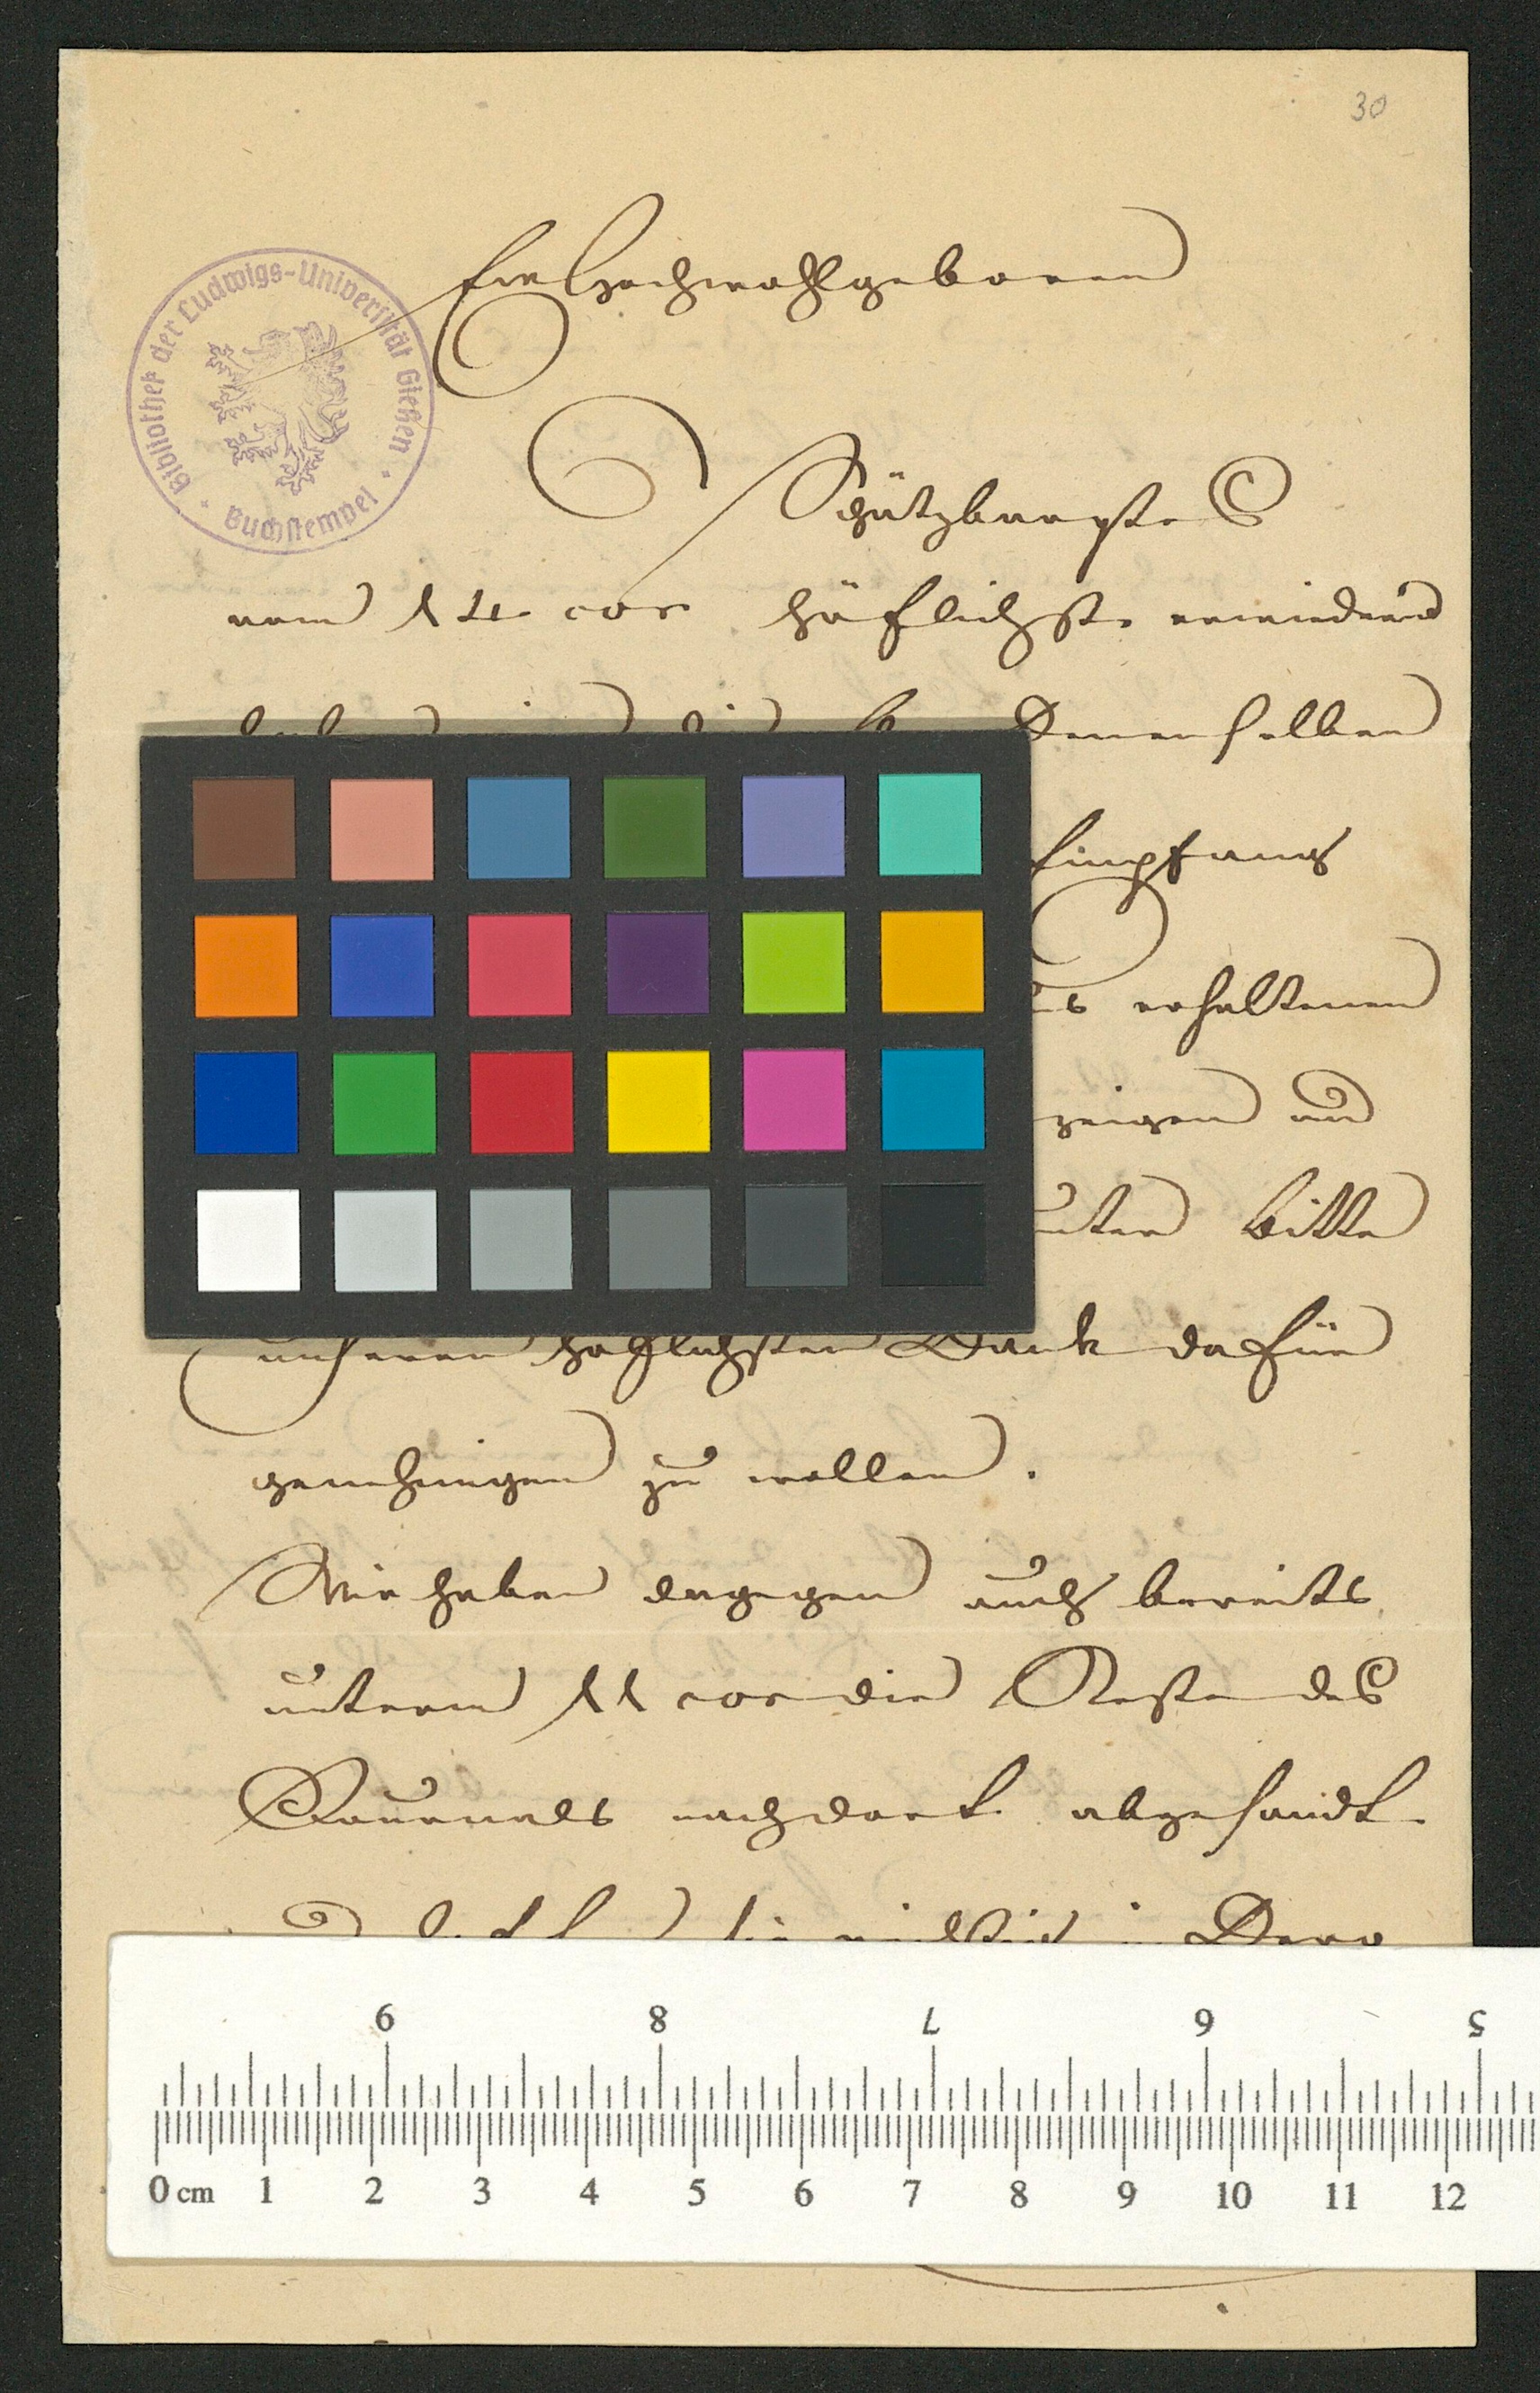 30
Bibliothek der Ludwigs-Universität Gießen
Buchstempel
Ew Hochwohlgeboren
Schätzbarstes
vom 14 cor höflichst erwiedernd
Denenselben
Empfang
erhaltenen
zeigen und
bitte
unseren höflichsten Dank dafür
genehmigen zu wollen.
Wir haben dagegen auch bereits
unterm 11 cor die Reste des
Journals nachdort abgesandt
Dero
9 8 7 6 5
0 cm 1 2 3 4 5 6 7 8 9 10 11 12